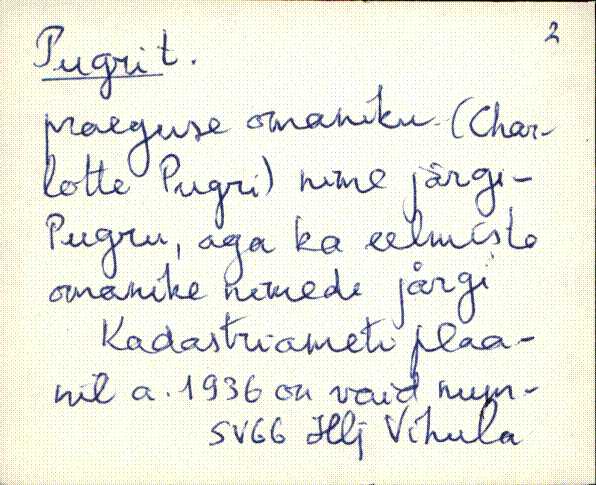 2
Pugri t.
praeguse omaniku (Char-
lotte Pugri) nime järgi -
Pugru, aga ka eelmiste
omanike nimede järgi
Kadastriameti plaa-
nil a. 1936 on vaid num-
Hlj Vihula